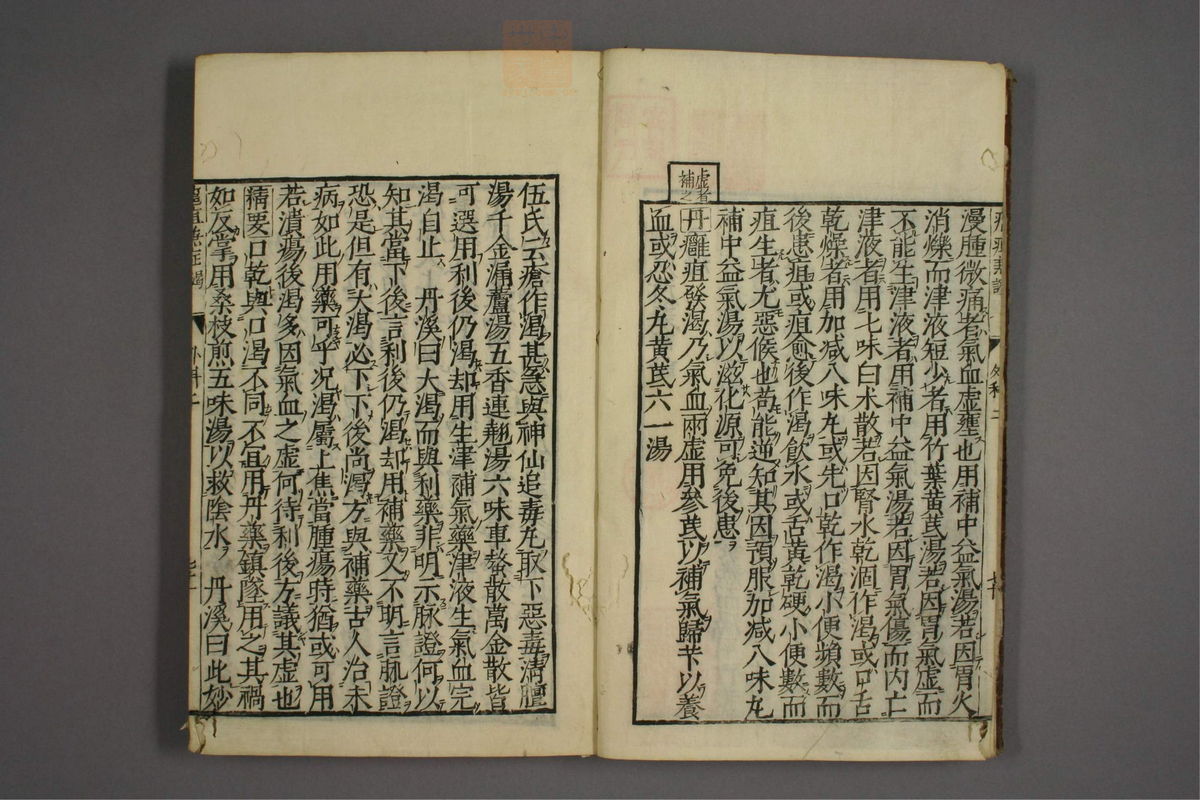 漫腫微痛者氣血虚壅也用補中益氣湯若因胃火
消爍而津液短少者用竹葉黄芪湯若因胃氣虚而
不能生津液者用補中益氣湯若因胃氣傷而内亡
津液者用七味白朮散若因腎水乾涸作渇或口舌
乾燥者用加减八味丸或先口乾作渇小便頻數而
後患疽或疽愈後作渇飲水或舌黄乾硬小便數而
疽生者尤惡候也苟能逆知其因預服加减八味丸
補中益氣湯以滋化源可免後患
虚者補之
丹癰疽發渇乃氣血兩虚用參芪以補氣歸芐以養
血或忍冬丸黄芪六一湯
外科二
伍氏云瘡作渇甚急與神仙追毒丸取下惡毒清膻
湯千金漏蘆湯五香連翹湯六味車螯散萬金散皆
可選用利後仍渇却用生津補氣藥津液生氣血完
渇自止 丹溪曰大渇而與利藥非明示脉證何以
知其當下後言利後仍渇却用補藥又不明言脉證
恐是但有大渇必下下後尚渇方與補藥古人治未
病如此用藥可乎况渇屬上焦當腫瘍時猶或可用
若潰瘍後渇多因氣血之虚何待利後方議其虚也
精要口乾與口渇不同不宜用丹藥鎮墜用之其禍
如反掌用桑枝煎五味湯以救陰水 丹溪曰此妙